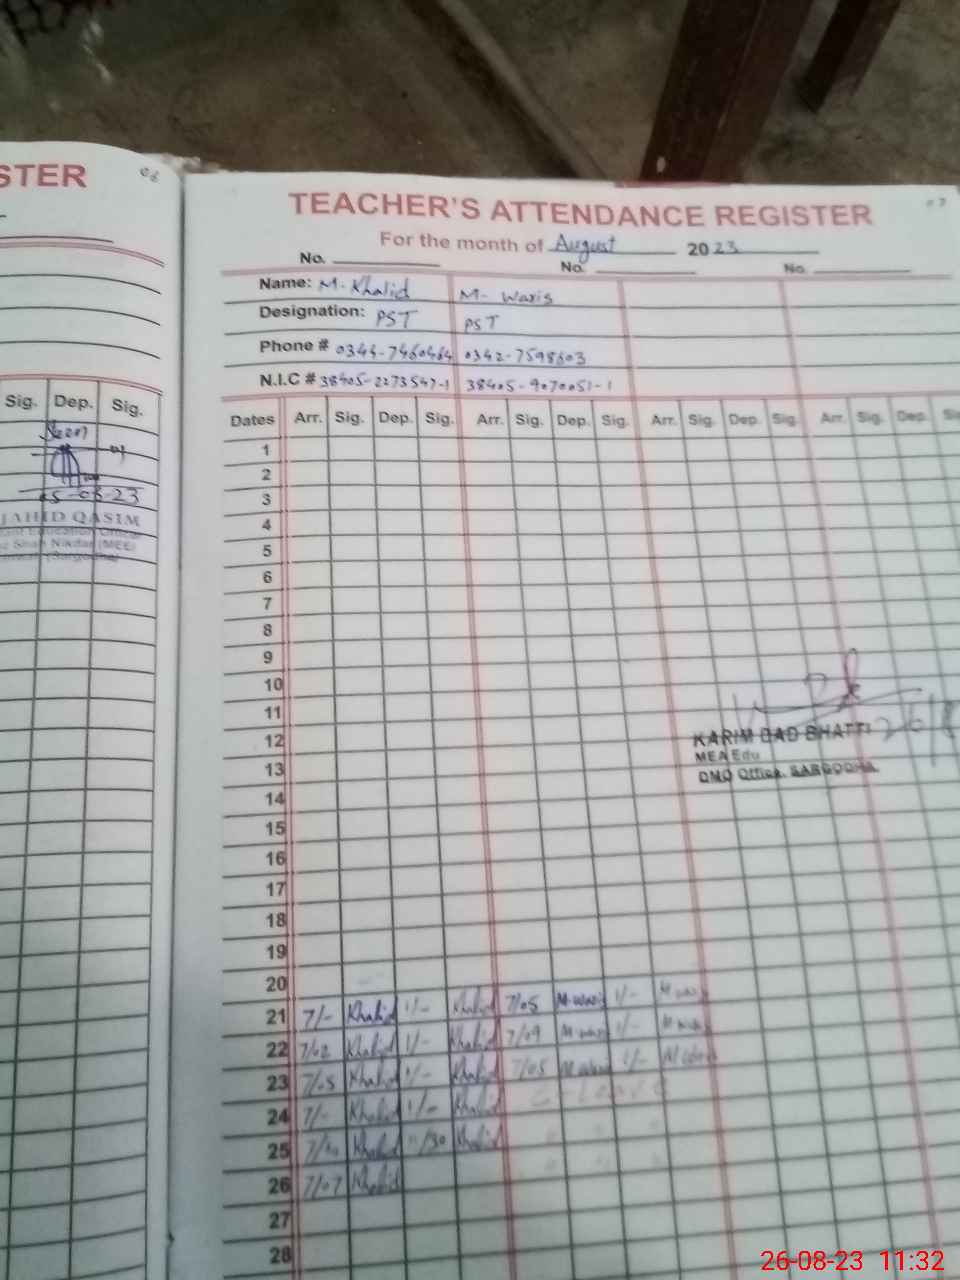 STER 06
TEACHER'S ATTENDANCE REGISTER 07
For the month of August 2023
No. No. No.
Name: M. Khalid M. Waris
Designation: PST PST
Phone # 0344-7460464 0342-7598603
N.I.C # 38405-2273547-1 38405-9070051-1
Sig. Dep. Sig.
Dates Arr. Sig. Dep. Sig. Arr. Sig. Dep. Sig. Arr. Sig. Dep. Sig. Arr. Sig. Dep.
Seen
05-06-23
JAHID QASIM
1
2
3
4
5
6
7
8
9
10
11
12
13
14
15
16
17
18
19
20
KARIM DAD BHATTI 26/8
MEA Edu
DMO Office, SARGODHA
21 7/- Khalid 1/- Khalid 7/05 M.waris 1/- M.waris
22 7/02 Khalid 1/- Khalid 7/09 M.waris 1/- M.waris
23 7/05 Khalid 1/- Khalid 7/05 M.waris 1/- M.waris
24 7/- Khalid 1/- Khalid C-Leave
25 Khalid 11/30 Khalid " " "
26 7/07 Khalid " " "
27
28
26-08-23 11:32